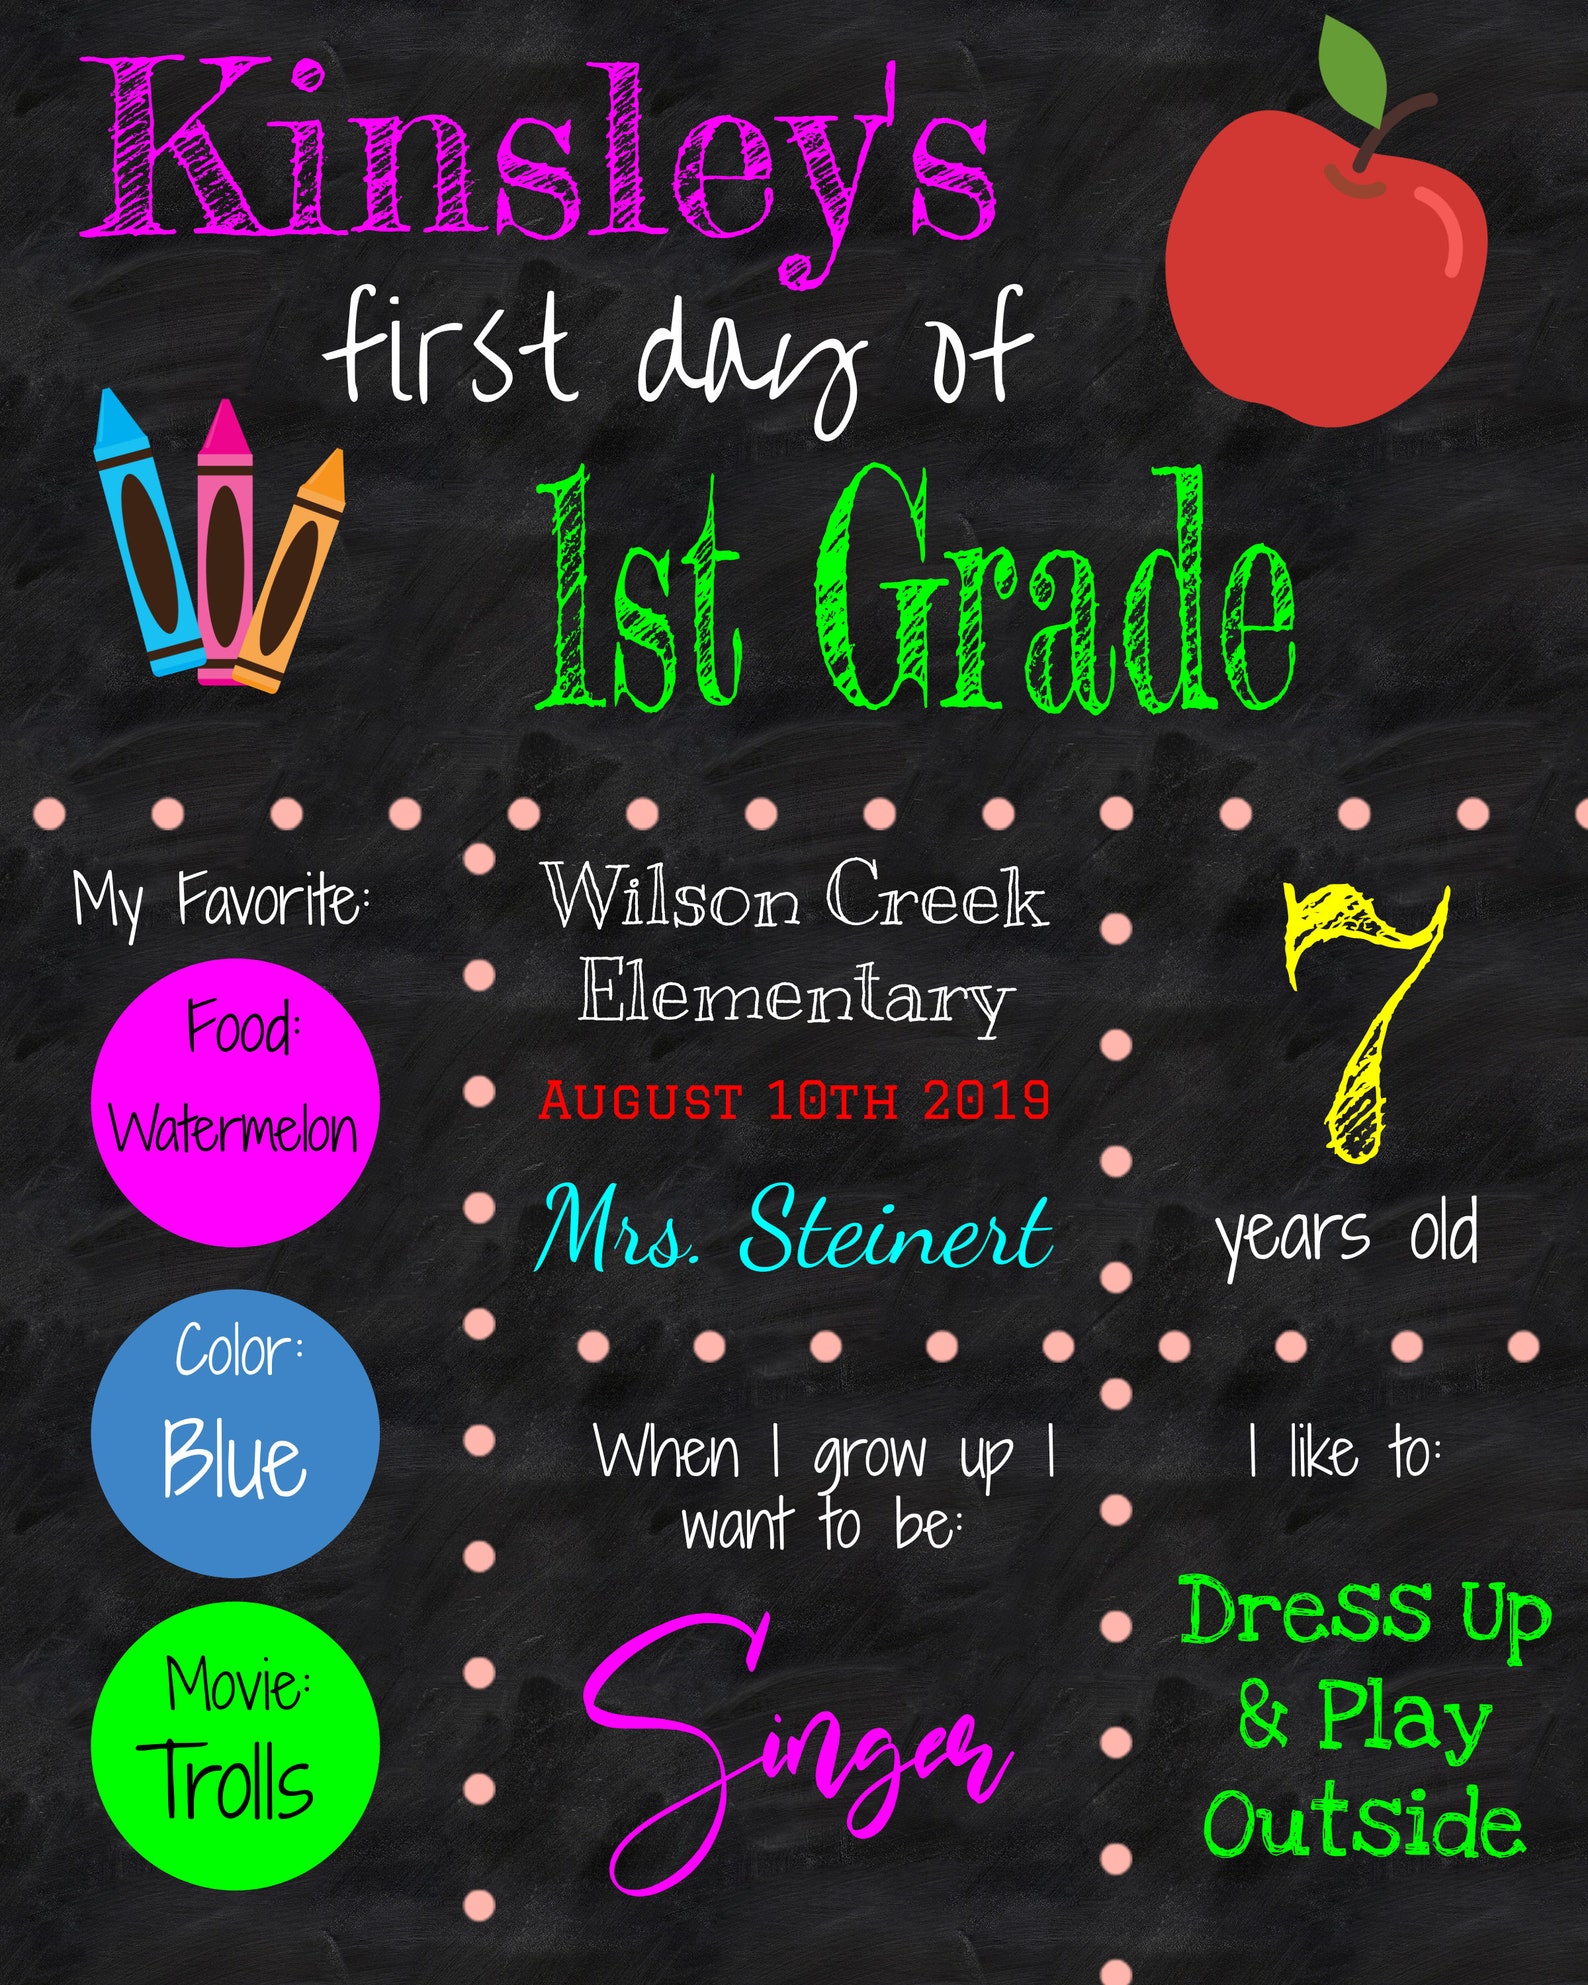 Kinsley's
first day of
1st Grade
My Favorite:
Food:
Watermelon
Color:
Blue
Movie:
Trolls
Wilson Creek
Elementary
August 10th 2019
Mrs. Steinert
7
years old
When I grow up I
want to be:
Singer
I like to:
Dress Up
& Play
Outside